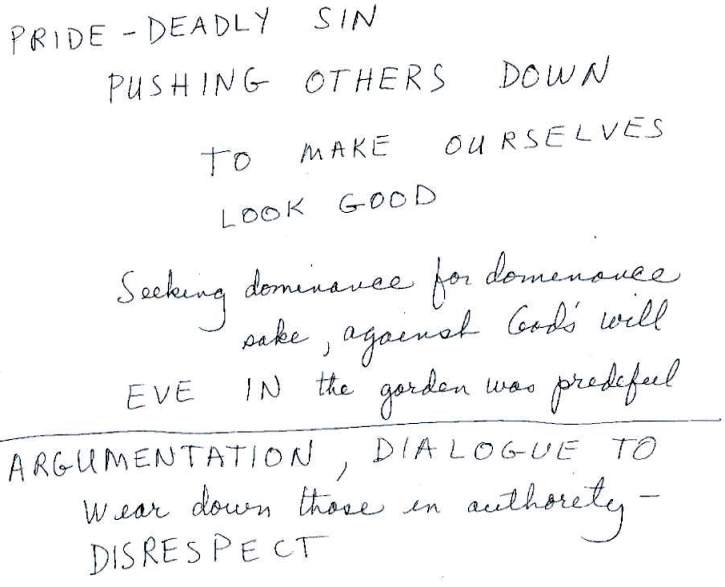 PRIDE - DEADLY SIN
PUSHING OTHERS DOWN
TO MAKE OURSELVES
LOOK GOOD
Seeking dominance for dominance
sake, against God's will
EVE IN the garden was prideful
ARGUMENTATION, DIALOGUE TO
Wear down those in authority -
DISRESPECT